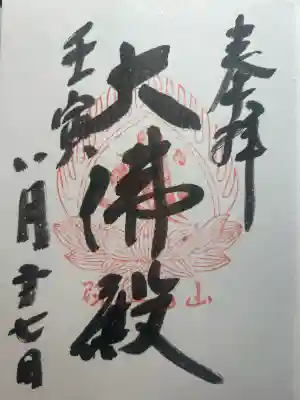 奉拜
大佛殿
壬寅
八月廿七日
山